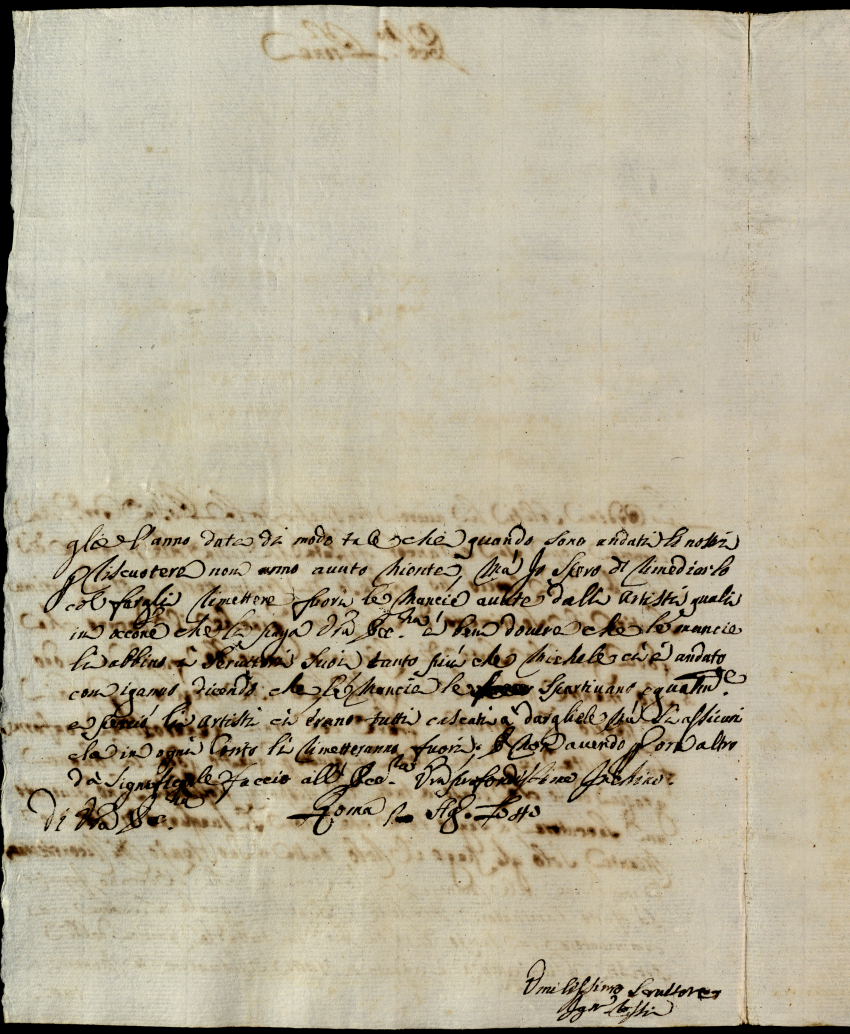 gliel'anno date di modo tale che quando sono andati li nostri
p riscuotere non anno auuto niente, Mà Jo Spero di rimediarlo
col fargli rimettere fuori le Mancie auute dalli Artisti quali
in che la paga V'ra Ecc.za è ben douere che le mancie
li abbino i Seruitori Suoi tanto più che Michele ci è andato
con iganno dicendo che le Mancie le Spartiuano egualm.e
e perciò li Artisti ci erano tutti cascati à dargliele Mà Si assicuri
che in ogni Conto li rimetteranno fuori. E Non auendo p ora altro
da Significarle faccio all' Ecc.za V'ra profondissimo Inchino.
Di V'ra Ecc.za Roma
Vmilissimo Seruitore